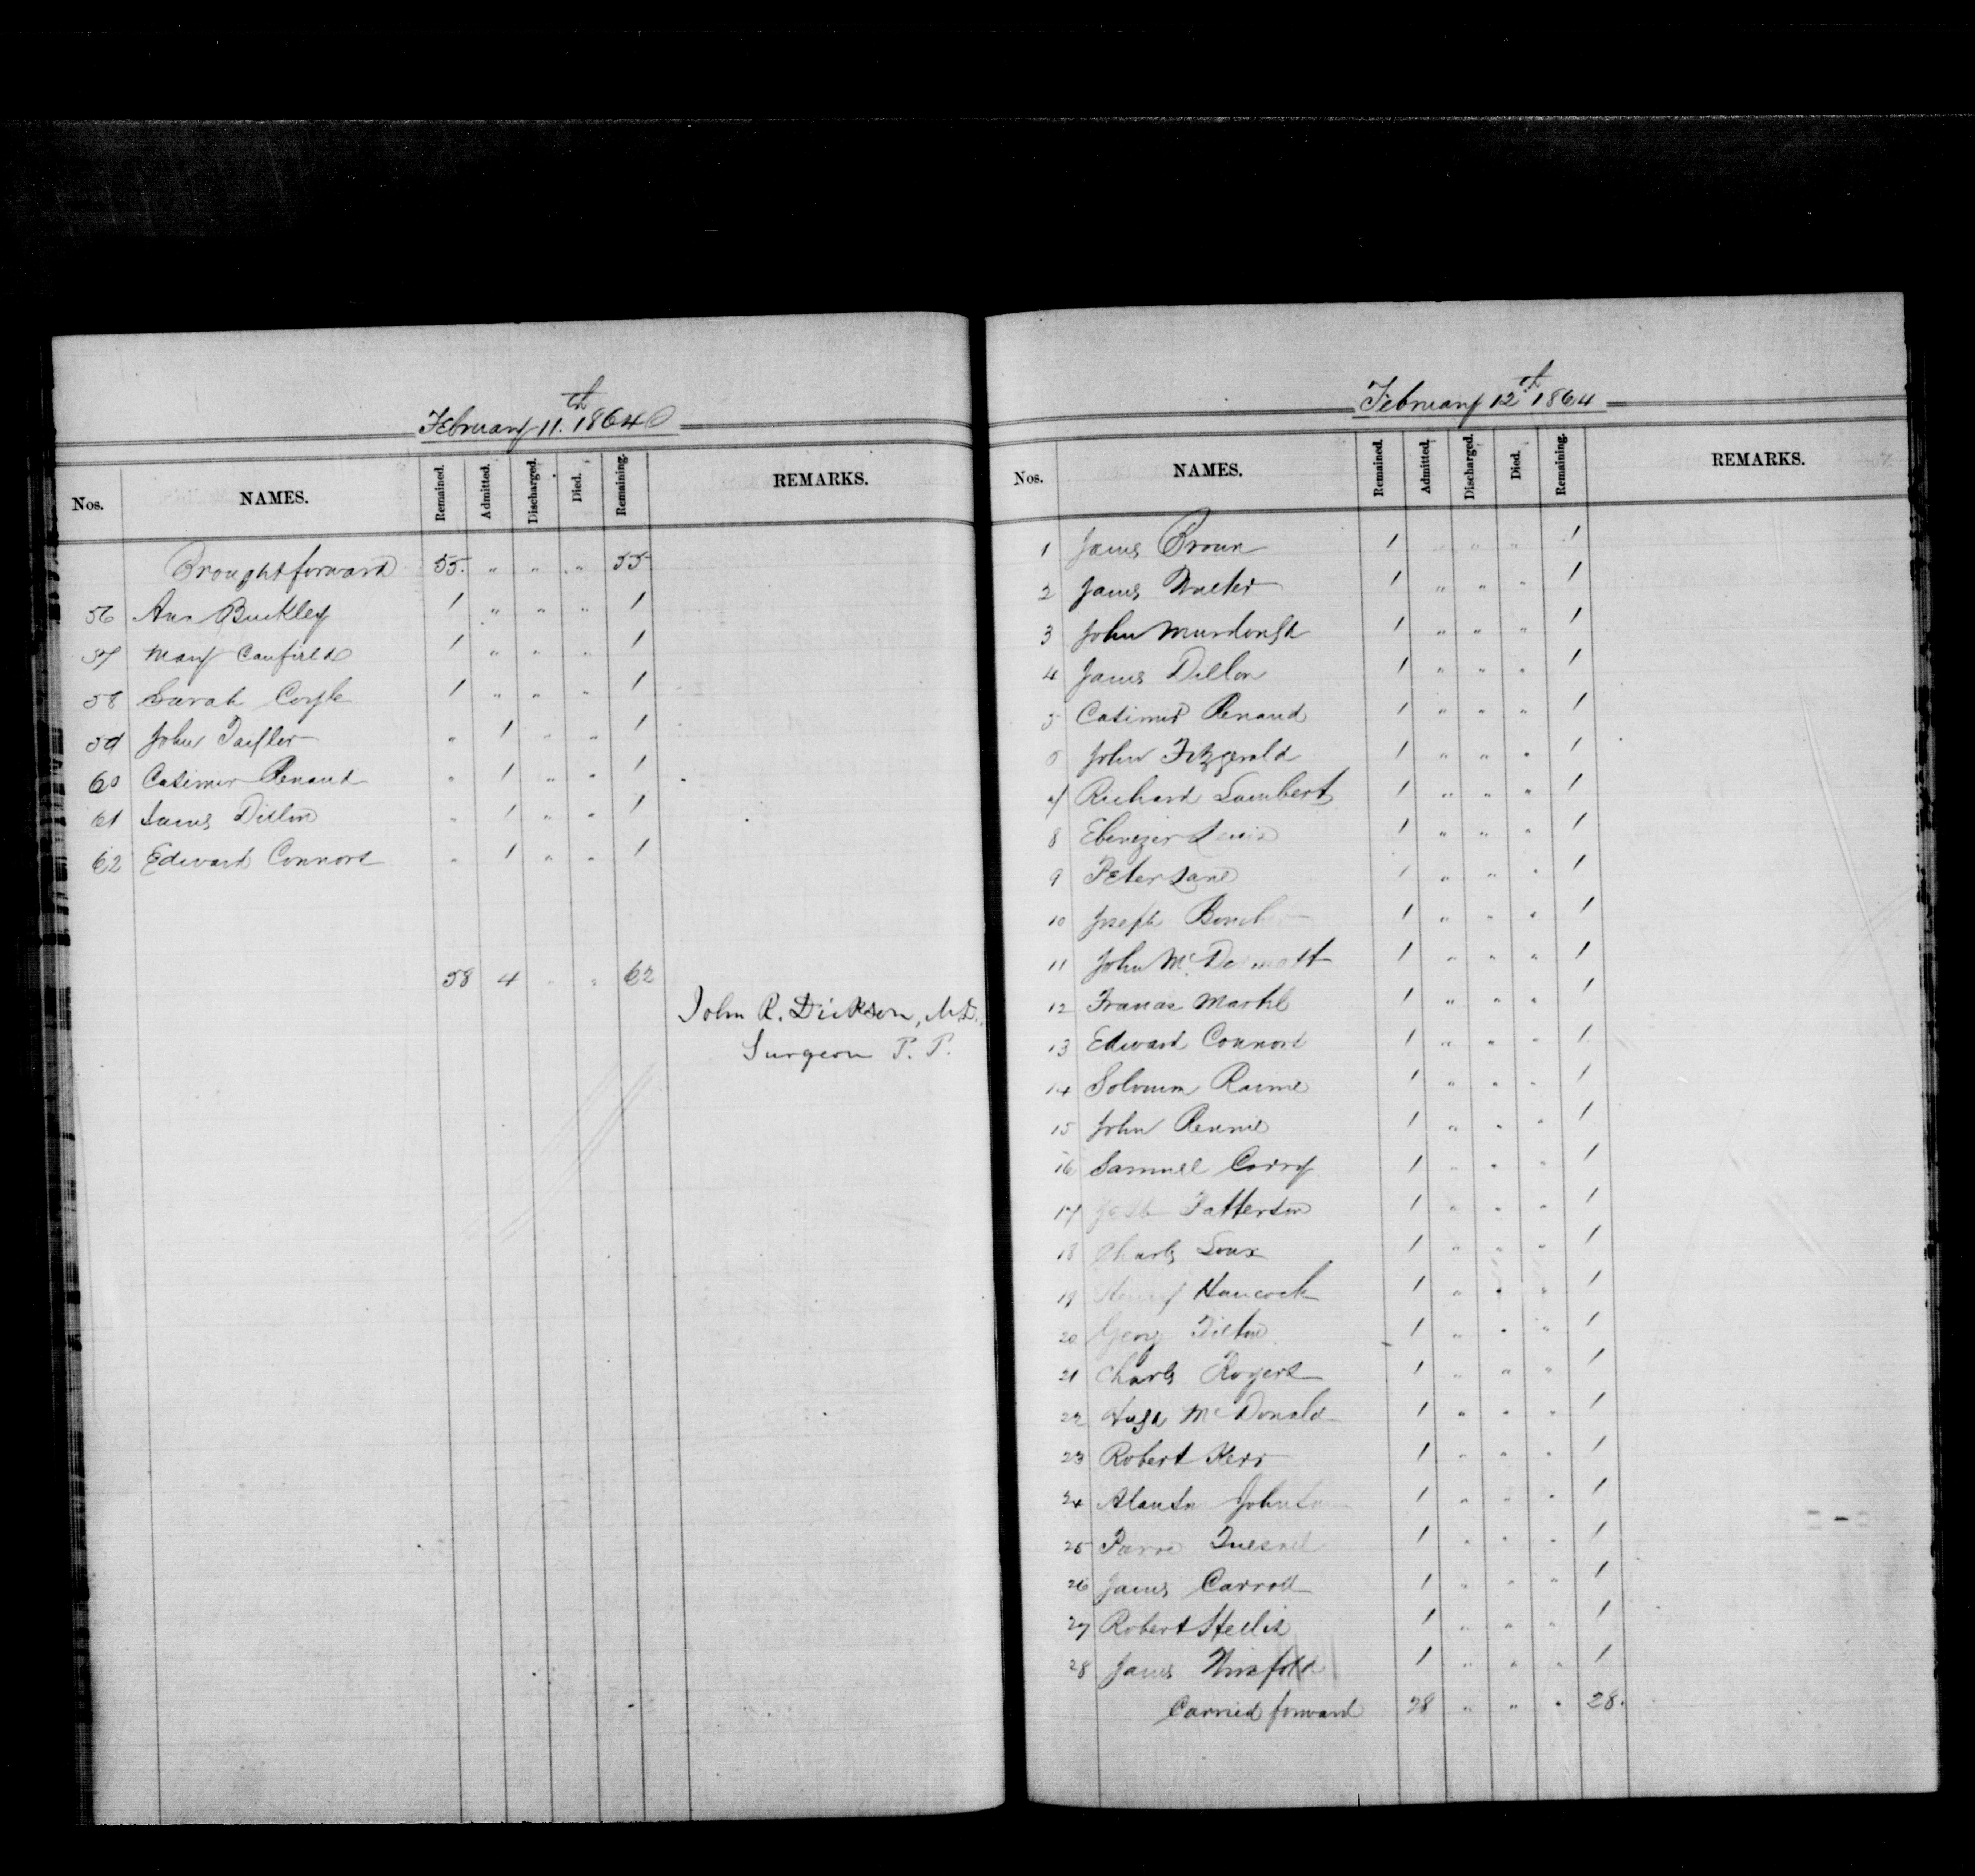 February 11.th 1864
Nos. NAMES. Remained. Admitted. Discharged. Died. Remaining. REMARKS.
Brought forward 55. " " " 55
56 Ann Buckley 1 " " " 1
57 Mary Canfield 1 " " " 1
58 Sarah Coyle 1 " " " 1
59 John Taylor " 1 " " 1
60 Casimer Renaud " 1 " " 1
61 James Dillon " 1 " " 1
62 Edward Connors " 1 " " 1
58 4 " " 62
John R. Dickson, M.D.,
Surgeon P. P.
February 12th 1864
Nos. NAMES. Remained. Admitted. Discharged. Died. Remaining. REMARKS.
1 James Brown 1 " " " 1
2 James Walter 1 " " " 1
3 John Murdough 1 " " " 1
4 James Dillon 1 " " " 1
5 Casimer Renaud 1 " " " 1
6 John Fitzgerald 1 " " " 1
7 Richard Lambert 1 " " " 1
8 Ebenezer Lewis 1 " " " 1
9 Peter Lane 1 " " " 1
10 Joseph 1 " " " 1
11 John Mc.Dermott 1 " " " 1
12 Francis Markle 1 " " " 1
13 Edward Connors 1 " " " 1
14 Solomon Raime 1 " " " 1
15 John Rennie 1 " " " 1
16 Samuel Corry 1 " " " 1
17 Jesse Patterson 1 " " " 1
18 Charles Loux 1 " " " 1
19 Henry Hancock 1 " " " 1
20 George Tilton 1 " " " 1
21 Charles Rogers 1 " " " 1
22 Hugh McDonald 1 " " " 1
23 Robert Kerr 1 " " " 1
24 Alanson Johnson 1 " " " 1
25 1 " " " 1
26 James Carroll 1 " " " 1
27 Robert Hellis 1 " " " 1
28 James 1 " " " 1
Carried forward 28 " " " 28.